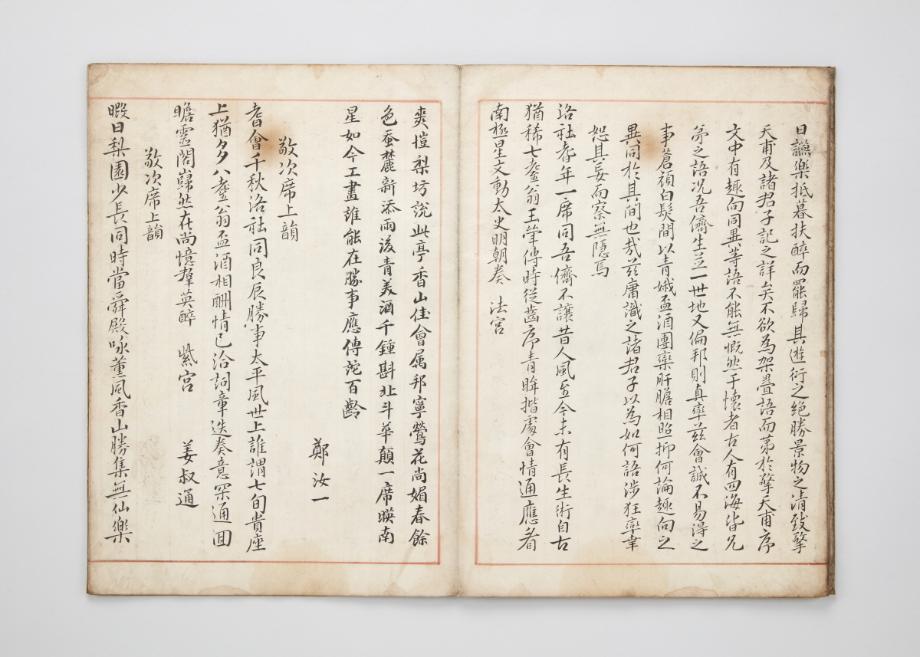 日讌樂抵暮扶醉而罷歸其遊衍之絕勝景物之清致擎
天甫及諸君子記之詳矣不欲為架疊語而第於擎天甫序
文中有趣向同異等語不能無慨然于懷者古人有四海皆兄
弟之語况吾儕生並一世地又偏邦則真率玆會誠不易得之
事蒼顔白髮間以青娥盃酒團欒肝膽相照抑何論趣向之
異同於其間也哉玆庸識之諸君子以為如何語涉狂率幸
恕其妄而察無隱焉
洛社耆年一席同吾儕不讓昔人風至今未有長生術自古
猶稀七耋翁玉聲傳時從齒序青眸揩處會情通應看
南極星文動太史明朝奏 法宮
爽愷梨坊說此亭香山佳會属邦寧鶯花尚媚春餘
色蚕麓新添雨後青美酒千鍾斟北斗華顛一席暎南
星如今工畫誰能在勝事應傳詫百齡
鄭汝一
敬次席上韻
耆會千秋洛社同良辰勝事太平風世上誰謂七旬貴座
上猶多八耋翁盃酒相酬情已洽詞章迭奏意罙通回
瞻靈閣巋然在尚憶羣英醉 紫宮
姜叔通
敬次席上韻
暇日梨園少長同時當舜殿咏薰風香山勝集無仙樂